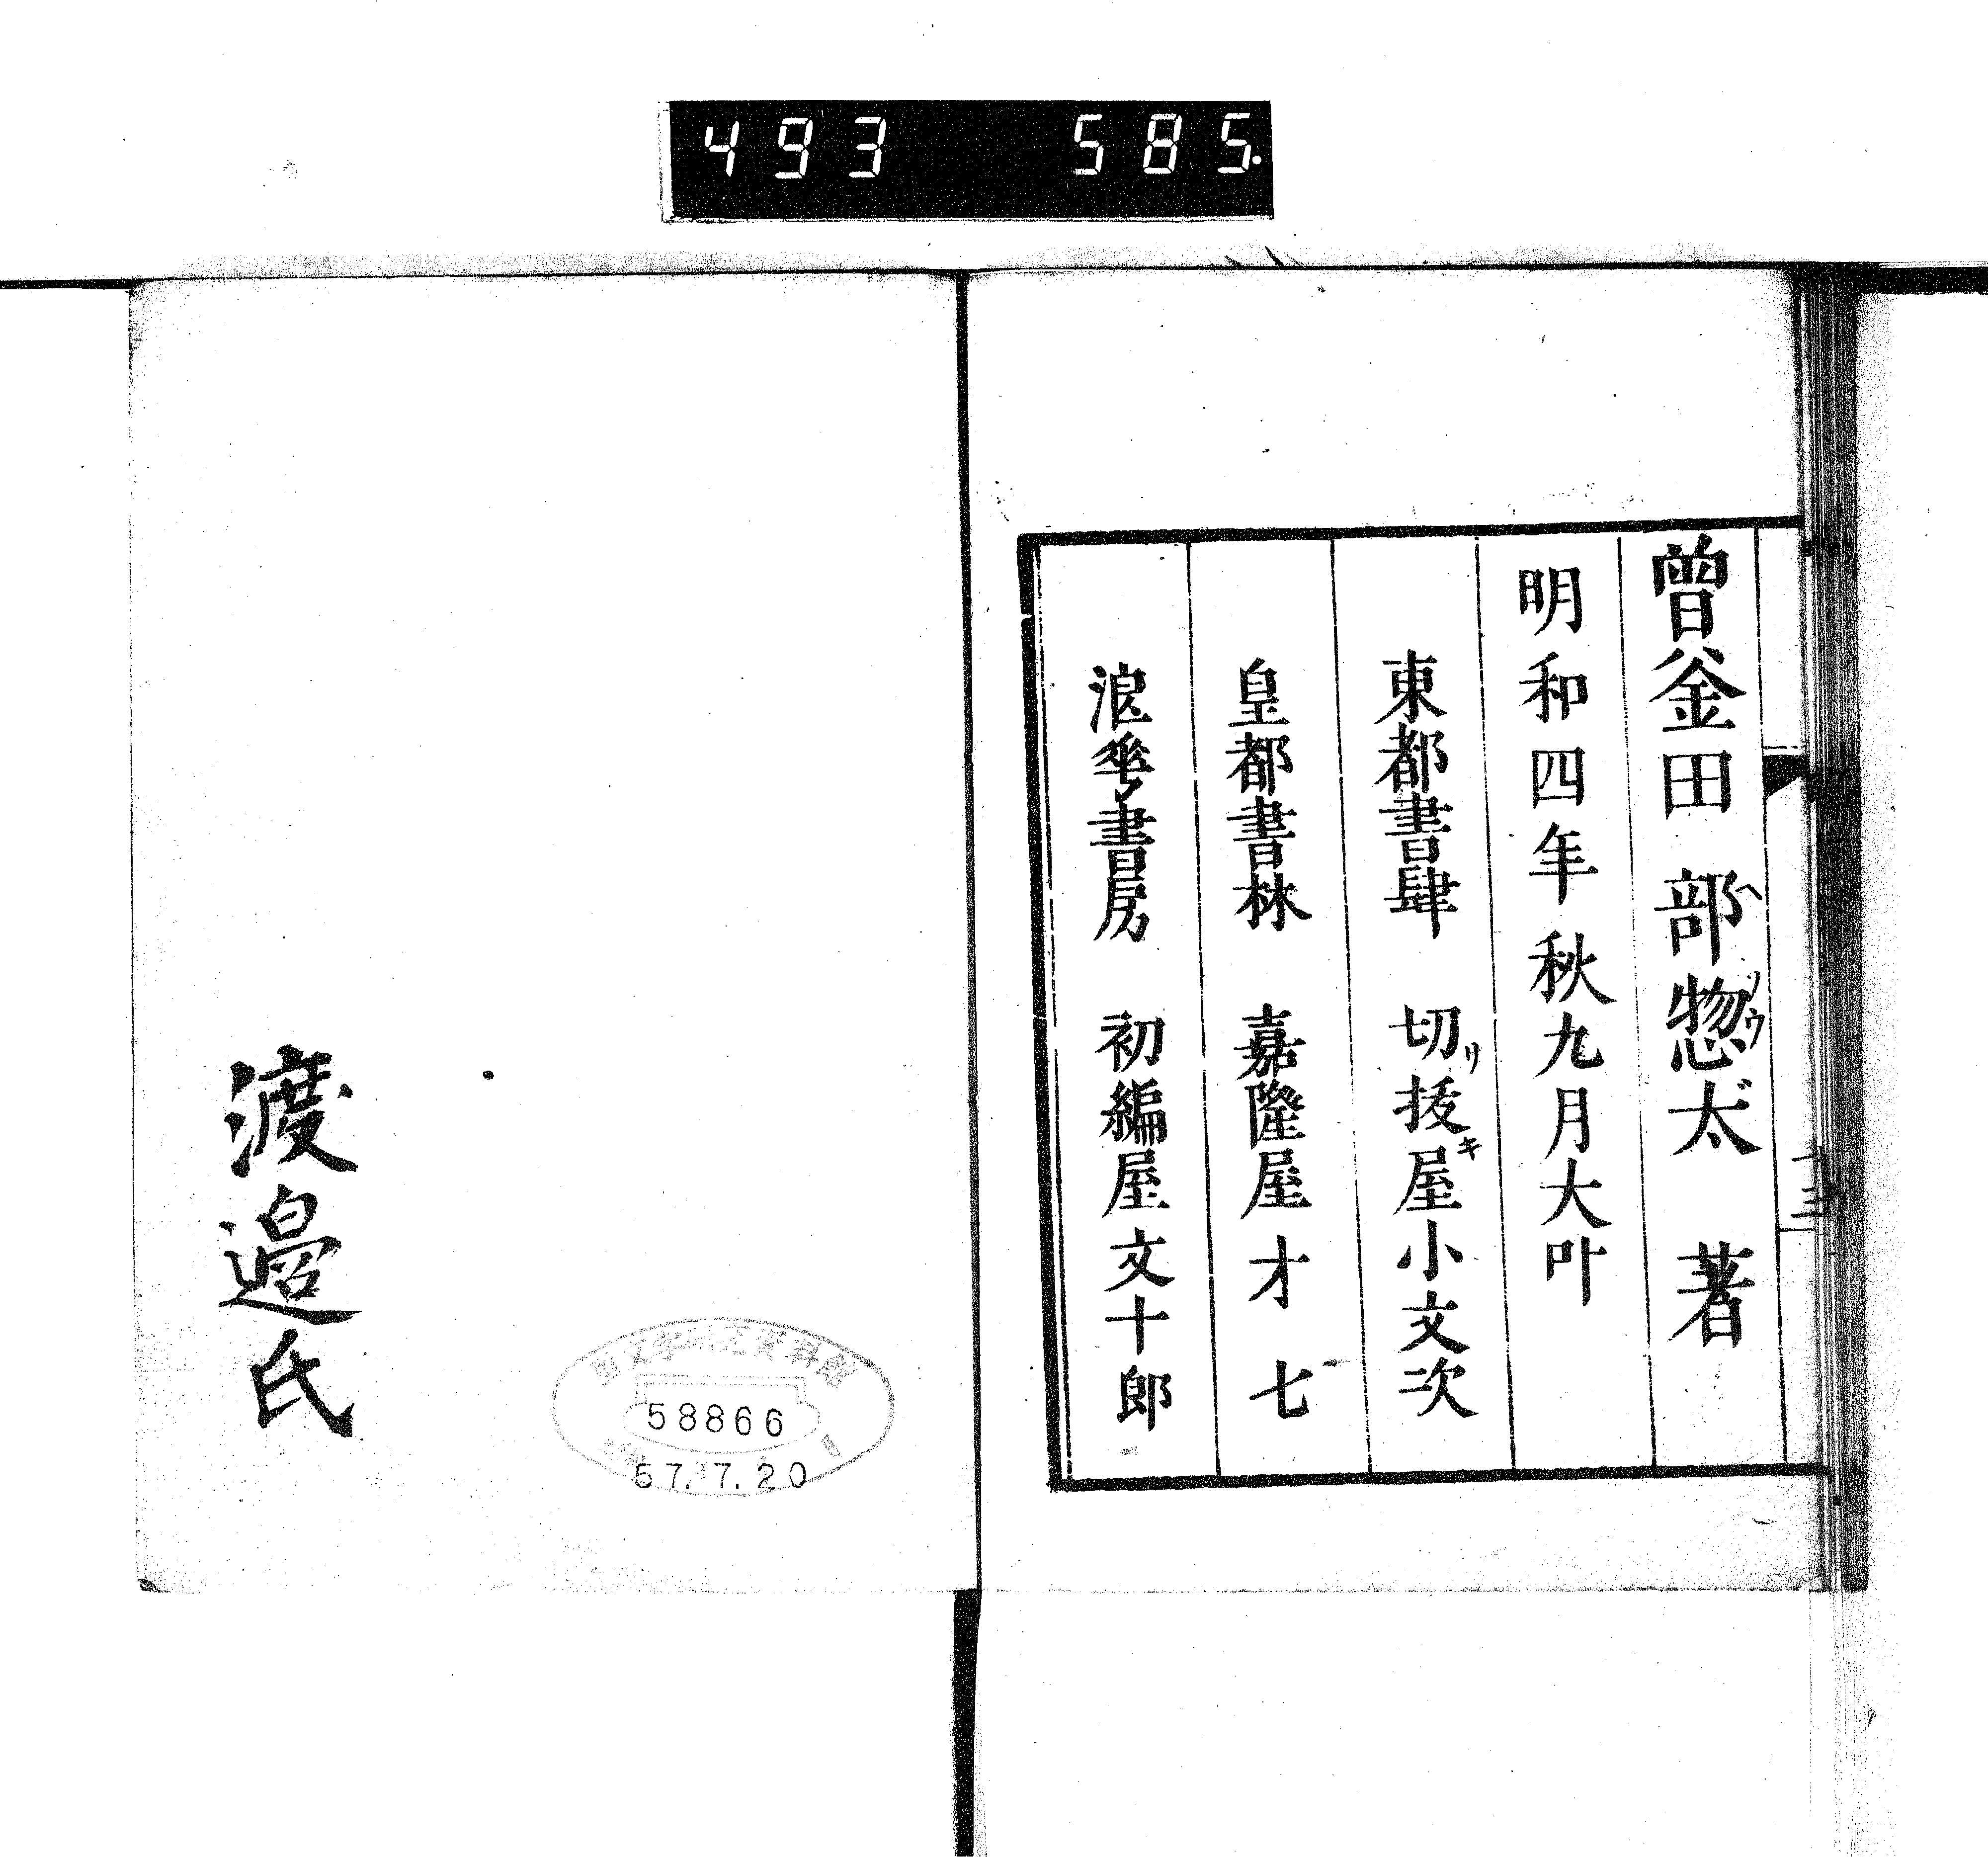 493 585.
曾釜田部惣太著
ヘ ソウ
明和四年秋九月大叶
東都書肆 切リ抜キ屋小文次
皇都書林 嘉隆屋才七
浪華書房 初編屋文十郎
十三
渡邉氏
国文学研究資料館
58866
57.7.20